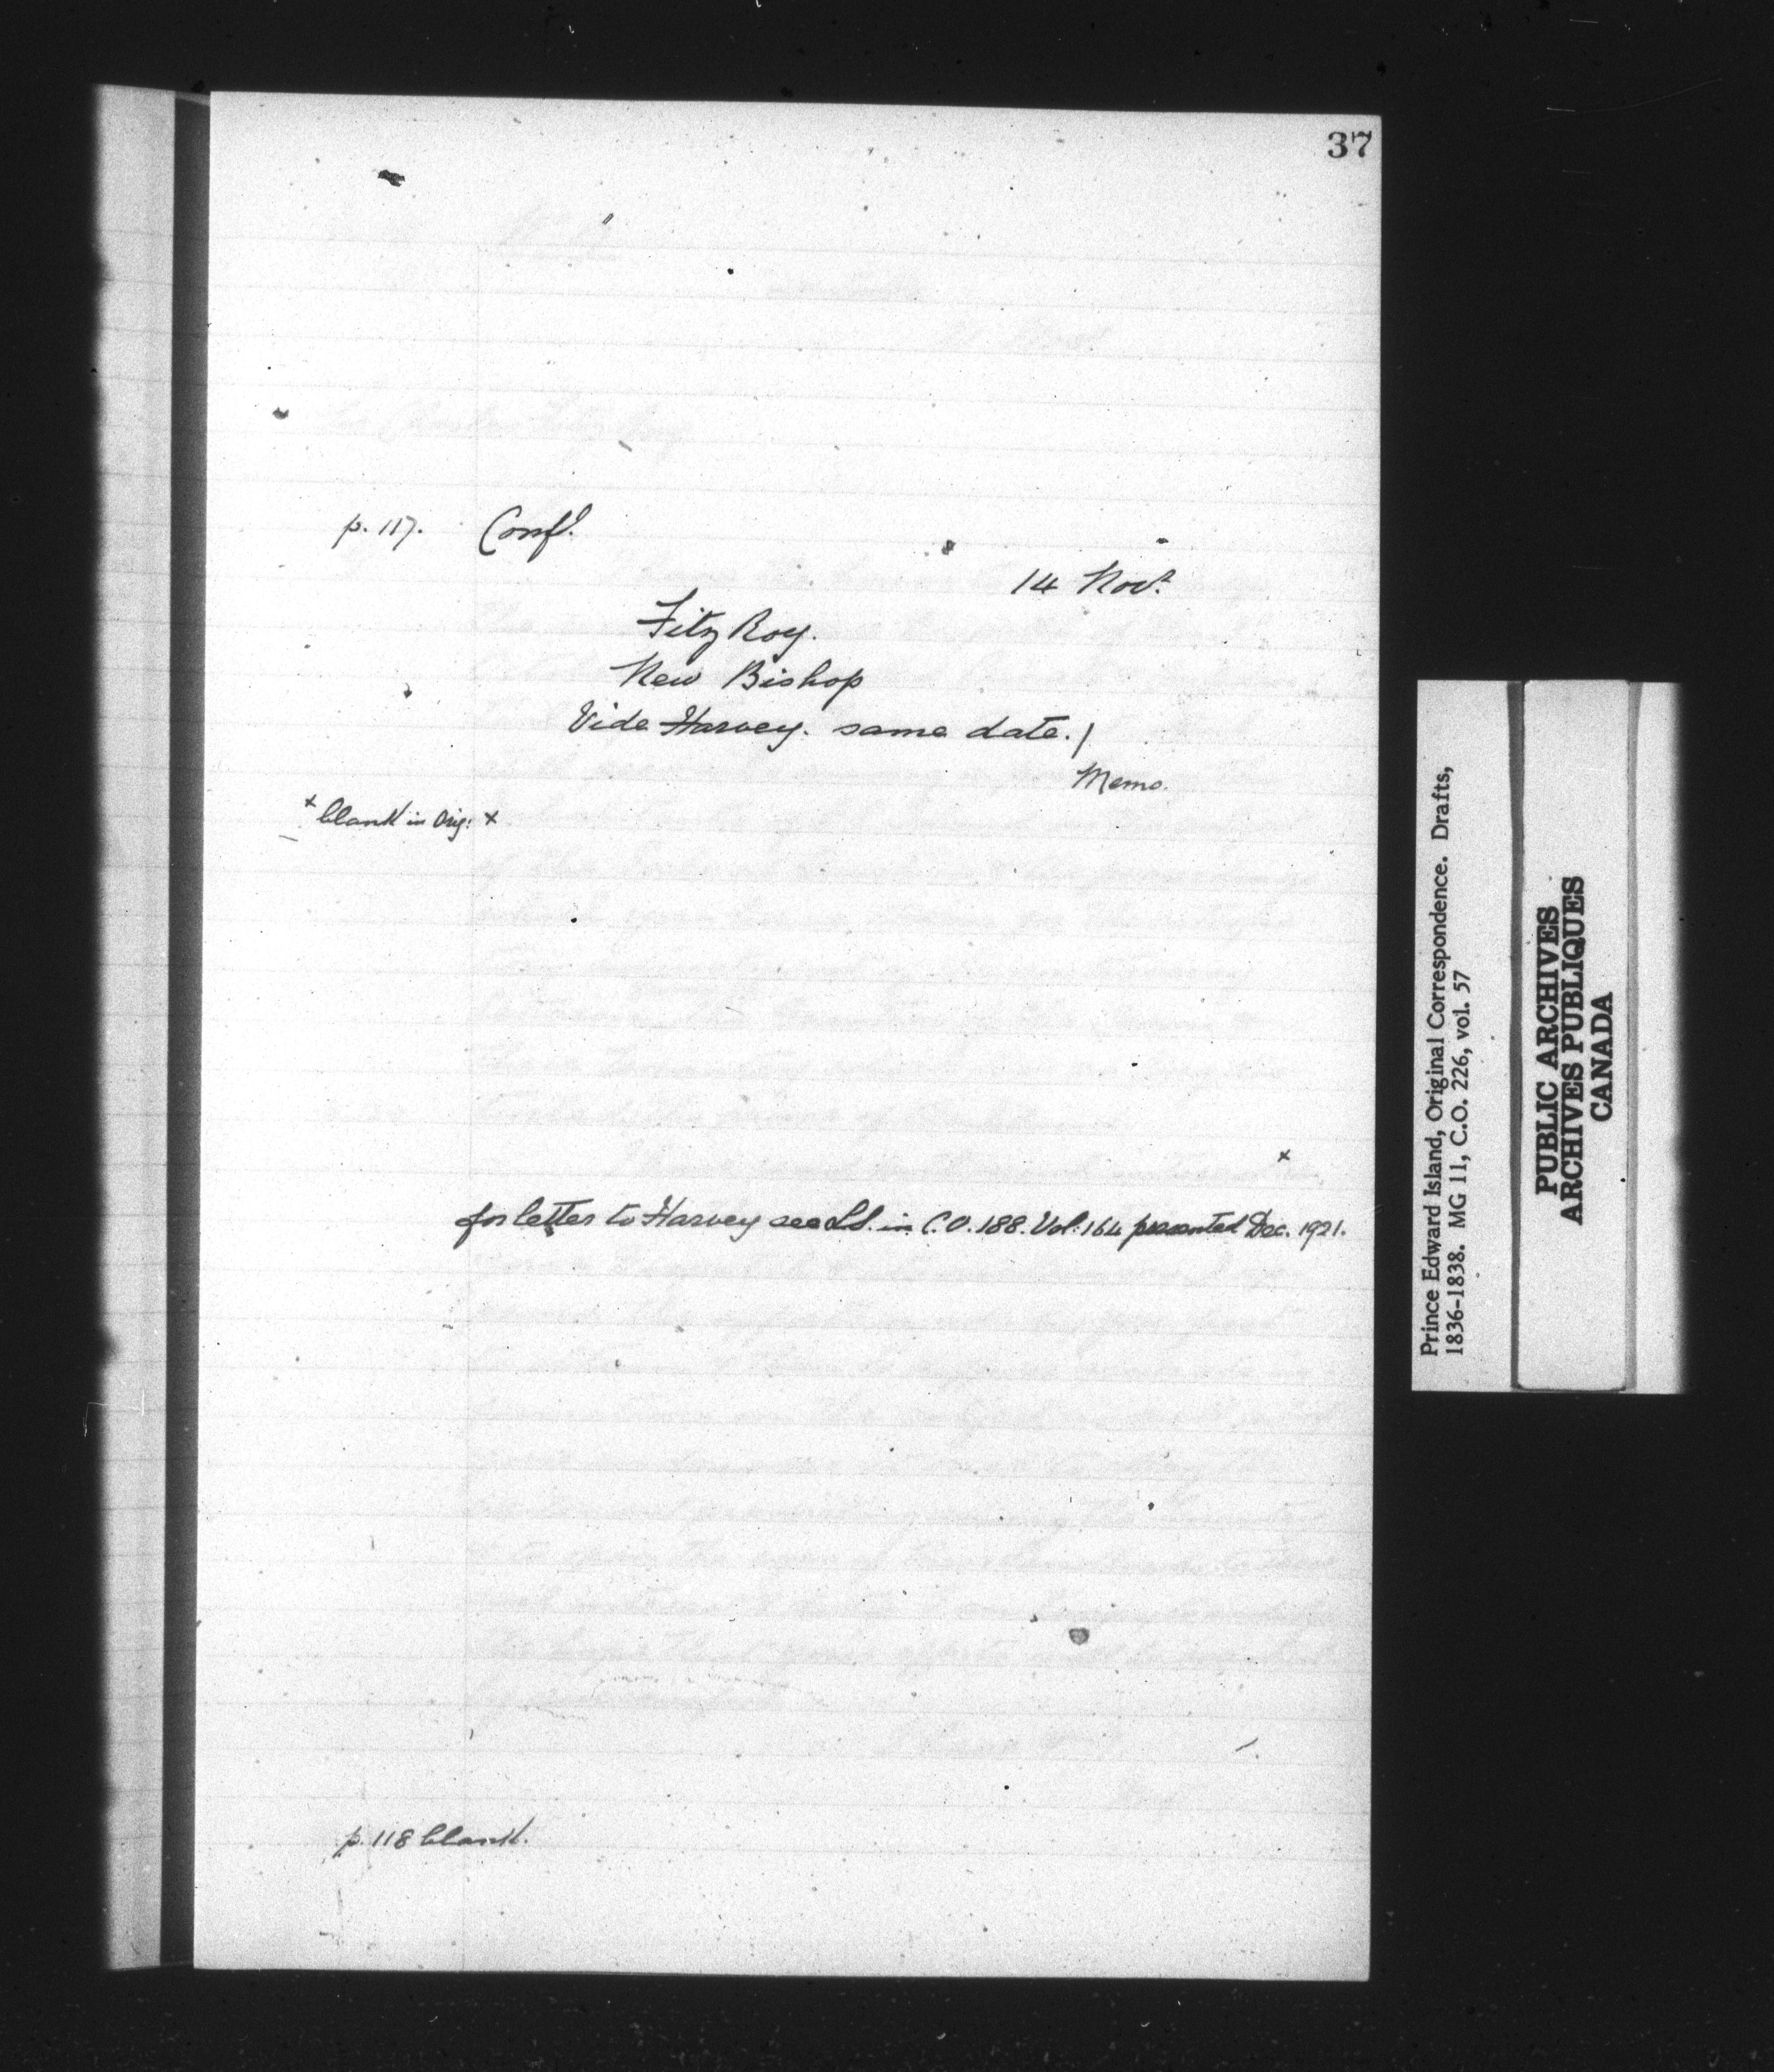 37
p. 117. Confl.
14 Novr.
Fitz Roy.
New Bishop
Vide Harvey. same date.)
Memo.
x blank in Orig: x
x
for letter to Harvey see in C.O. 188. Vol: 164 presented Dec. 1921.
p. 118 blank.
Prince Edward Island, Original Correspondence. Drafts,
1836-1838. MG 11, C.O. 226, vol. 57
PUBLIC ARCHIVES
ARCHIVES PUBLIQUES
CANADA